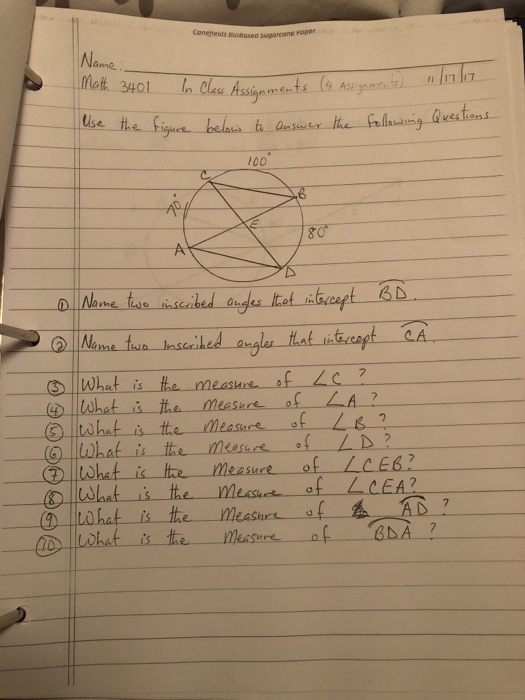 Canefields BioBased Sugarcane Paper
Name:
Math 3401 In Class Assignments (4 Assignments) 11/17/17
Use the figure below to answer the following Questions
100°
C
B
70°
E
80°
A
D
① Name two inscribed angles that intercept BD.
② Name two inscribed angles that intercept CA.
③ What is the measure of ∠C ?
④ What is the measure of ∠A ?
⑤ What is the measure of ∠B ?
⑥ What is the measure of ∠D ?
⑦ What is the measure of ∠CEB?
⑧ What is the measure of ∠CEA?
⑨ What is the measure of AD ?
⑩ What is the measure of BDA ?